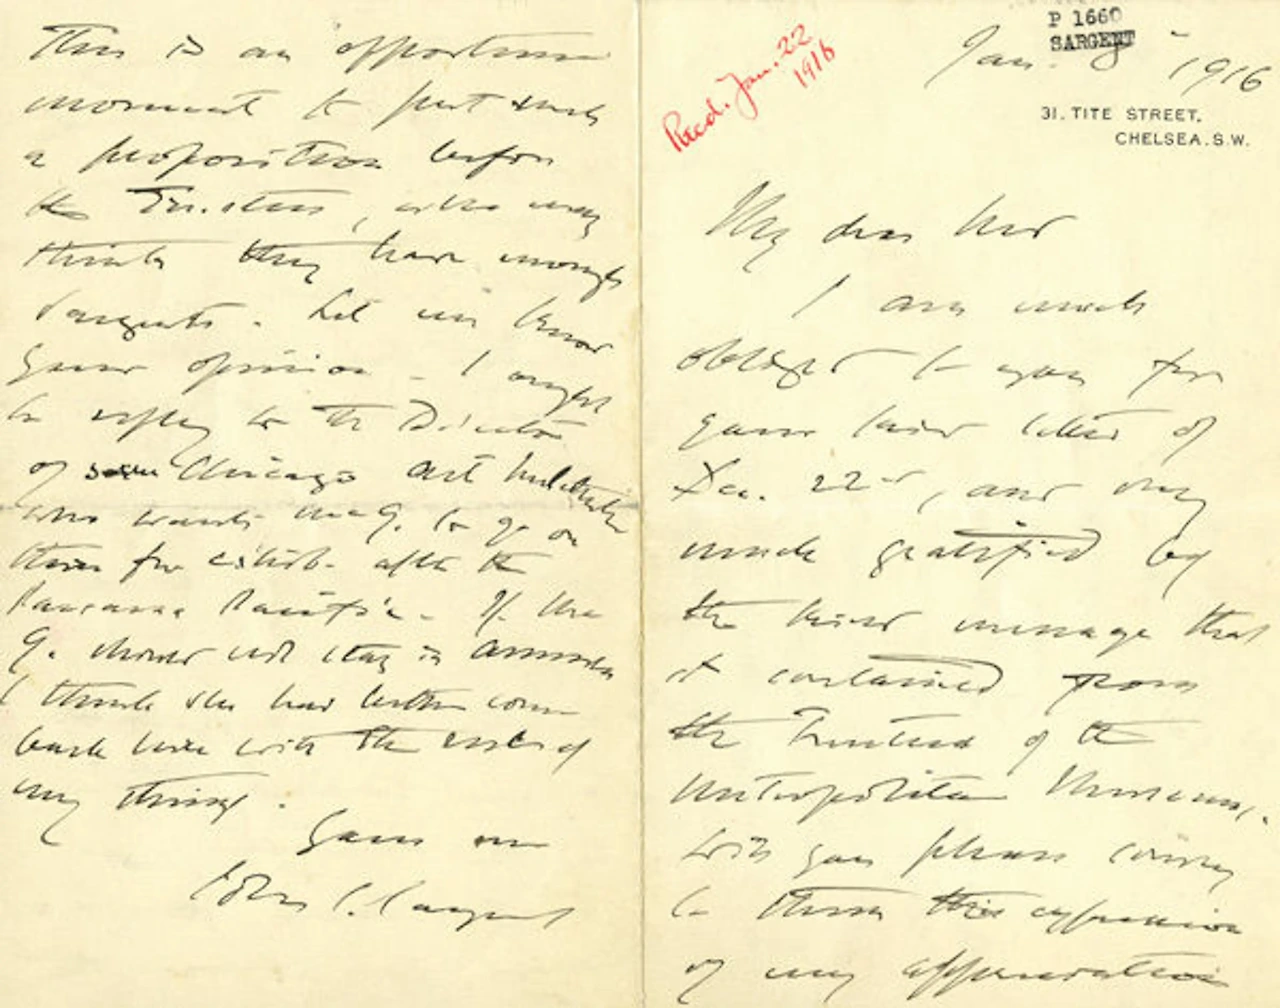 P 1660
SARGENT
Recd. Jan. 22
1916
Jan. 8 1916
31, TITE STREET,
CHELSEA. S.W.
My dear Ned
I am much
obliged to you for
your kind letter of
Dec. 22nd, and very
much gratified by
the kind message that
it contained from
the Trustees of the
Metropolitan Museum.
Will you please convey
to them this expression
of my appreciation
This is an opportune
moment to put such
a proposition before
the Trustees, who may
think they have enough
Sargents. Let me know
your opinion - I ought
to reply to the Director
of Chicago Art Institute
who wants Me G. to go on
there for exhib. after the
Panama Pacific. If Me
G. should not stay in America
I think she had better come
back here with the rest of
my things.
Yours ever
John S. Sargent